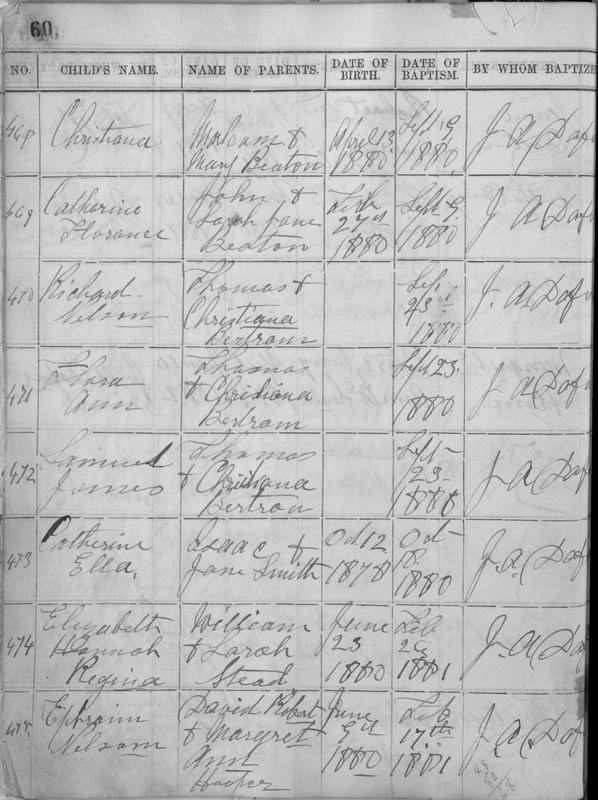 60.
NO. CHILD'S NAME. NAME OF PARENTS. DATE OF BIRTH. DATE OF BAPTISM. BY WHOM BAPTIZE
468 Christiana Malcom & Mary Beaton April 13 1880 Sept. 9 1880 J A Daf
469 Catherine Florance John & Sarah Jane Beaton Feb 27th 1880 Sept 9. 1880 J A Daf
470 Richard Nelson Thomas & Christiana Bertram Sep. 23rd 1880 J. A. Daf
471 Flora Ann Thomas & Christiana Bertram Sept 23. 1880 J A Daf
472 Samuel James Thomas & Christiana Bertram Sept 23 1880 J A Daf
473 Catherine Ella, Isaac & Jane Smith Oct 12 1878 Oct 18. 1880 J. A. Daf
474 Elizabeth Hannah Regina William & Sarah Stead June 23 1880 Feb 1881 J. A Da
475 Ephraim Nelson David Robert & Margret Ann Hooper June 9th 1880 Feb 17th 1881 J. A. Daf